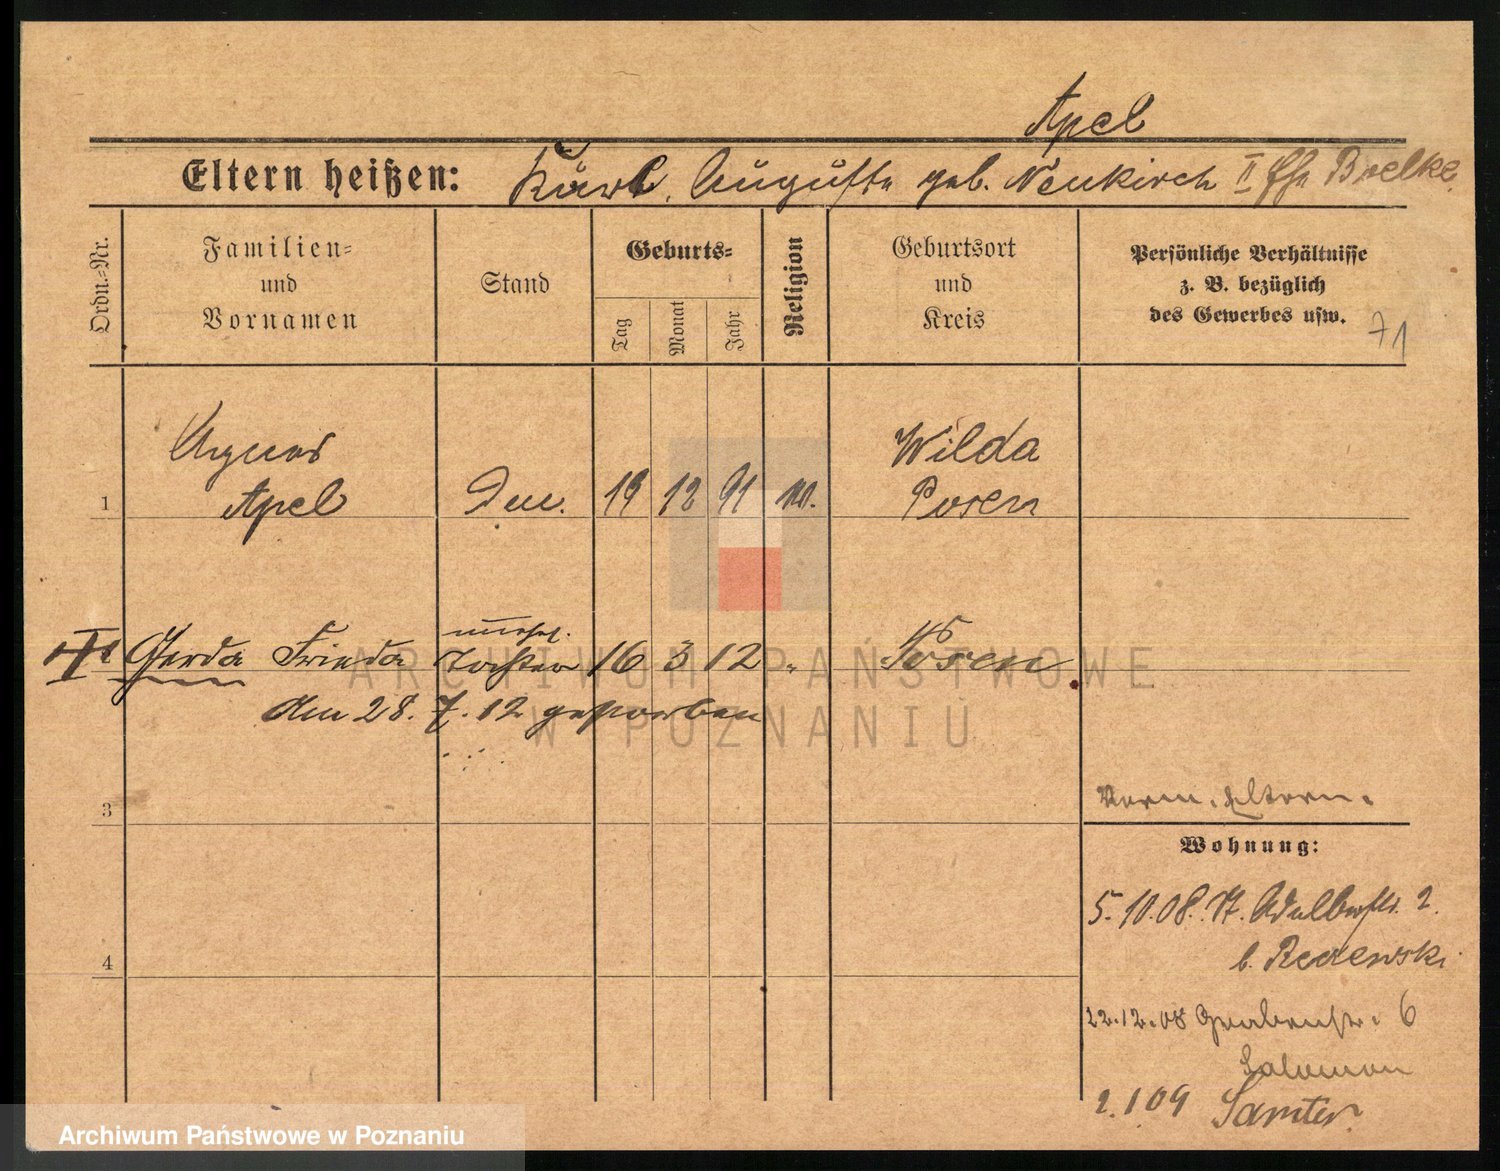 Apel
Eltern heißen: Karl, Auguste geb. Neukirch II Ehe Boelke
Ordn.-Nr.
Familien-
und
Vornamen
Stand
Geburts-
Tag
Monat
Jahr
Religion
Geburtsort
und
Kreis
Persönliche Verhältnisse
z. B. bezüglich
des Gewerbes usw.
71
Agnes Wilda
1 Apel 19 12 91 Posen
unehel.
Gerda Frieda Tochter 16 3 12 " Posen
am 28. 7. 12 gestorben
ARCHIWUM PAŃSTWOWE
W POZNANIU
3
Eltern.
Wohnung:
5. 10. 08. 2.
b.
4
22.12.08 Grabenstr. 6
Salomon
2. 1 09 Samter.
Archiwum Państwowe w Poznaniu